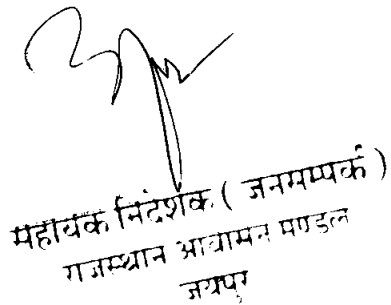 सहायक निदेशक ( जनसम्पर्क )
राजस्थान आवासन मण्डल
जयपुर